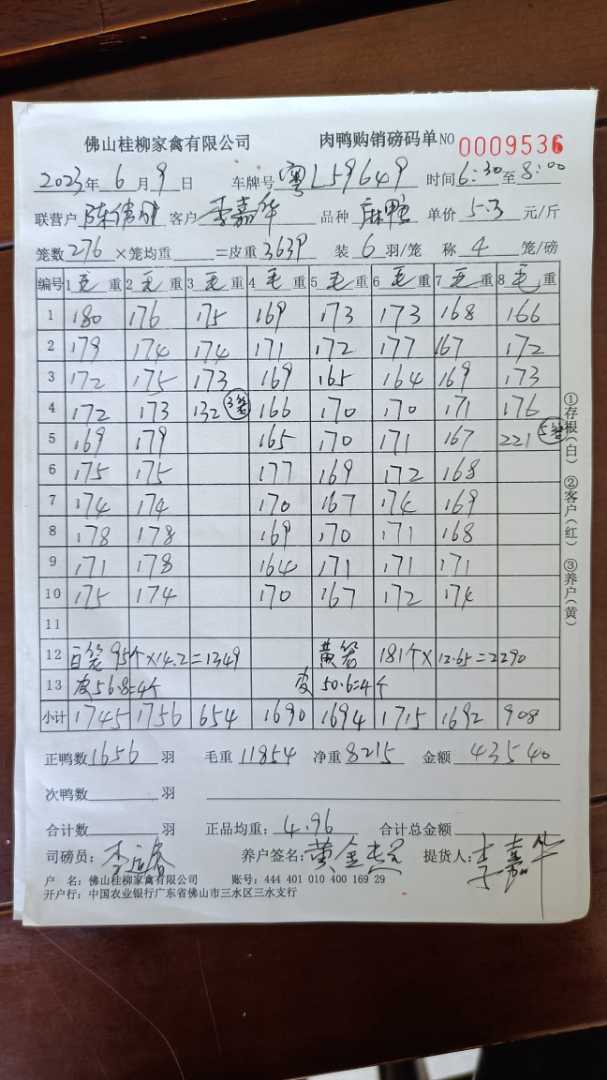 佛山桂柳家禽有限公司 肉鸭购销磅码单NO 0009536
2023年6月9日 车牌号 粤L59649 时间6:30至8:00
联营户 陈伟 客户 李嘉华 品种 麻鸭 单价 5.3 元/斤
笼数276×笼均重 =皮重3639 装 6 羽/笼 称 4 笼/磅
编号 1毛重 2毛重 3毛重 4毛重 5毛重 6毛重 7毛重 8毛重
1 180 176 175 169 173 173 168 166
2 179 174 174 171 172 177 167 172
3 172 175 173 169 165 164 169 173
4 172 173 132 3笼 166 170 170 171 176
5 169 179 165 170 171 167 221 5笼
6 175 175 177 169 172 168
7 174 174 170 167 174 169
8 178 178 169 170 171 168
9 171 178 164 171 171 171
10 175 174 170 167 172 174
11
12 白笼 95个×14.2=1349 黄笼 181个×12.65=2290
13 皮56.8=4个 皮 50.6=4个
小计 1745 1756 654 1690 1694 1715 1692 908
正鸭数1656 羽 毛重 11854 净重 8215 金额 43540
次鸭数 羽
合计数 羽 正品均重: 4.96 合计总金额
司磅员: 李 养户签名: 黄金 提货人: 李嘉华
户 名: 佛山桂柳家禽有限公司 账号: 444 401 010 400 169 29
开户行: 中国农业银行广东省佛山市三水区三水支行
①存根(白) ②客户(红) ③养户(黄)